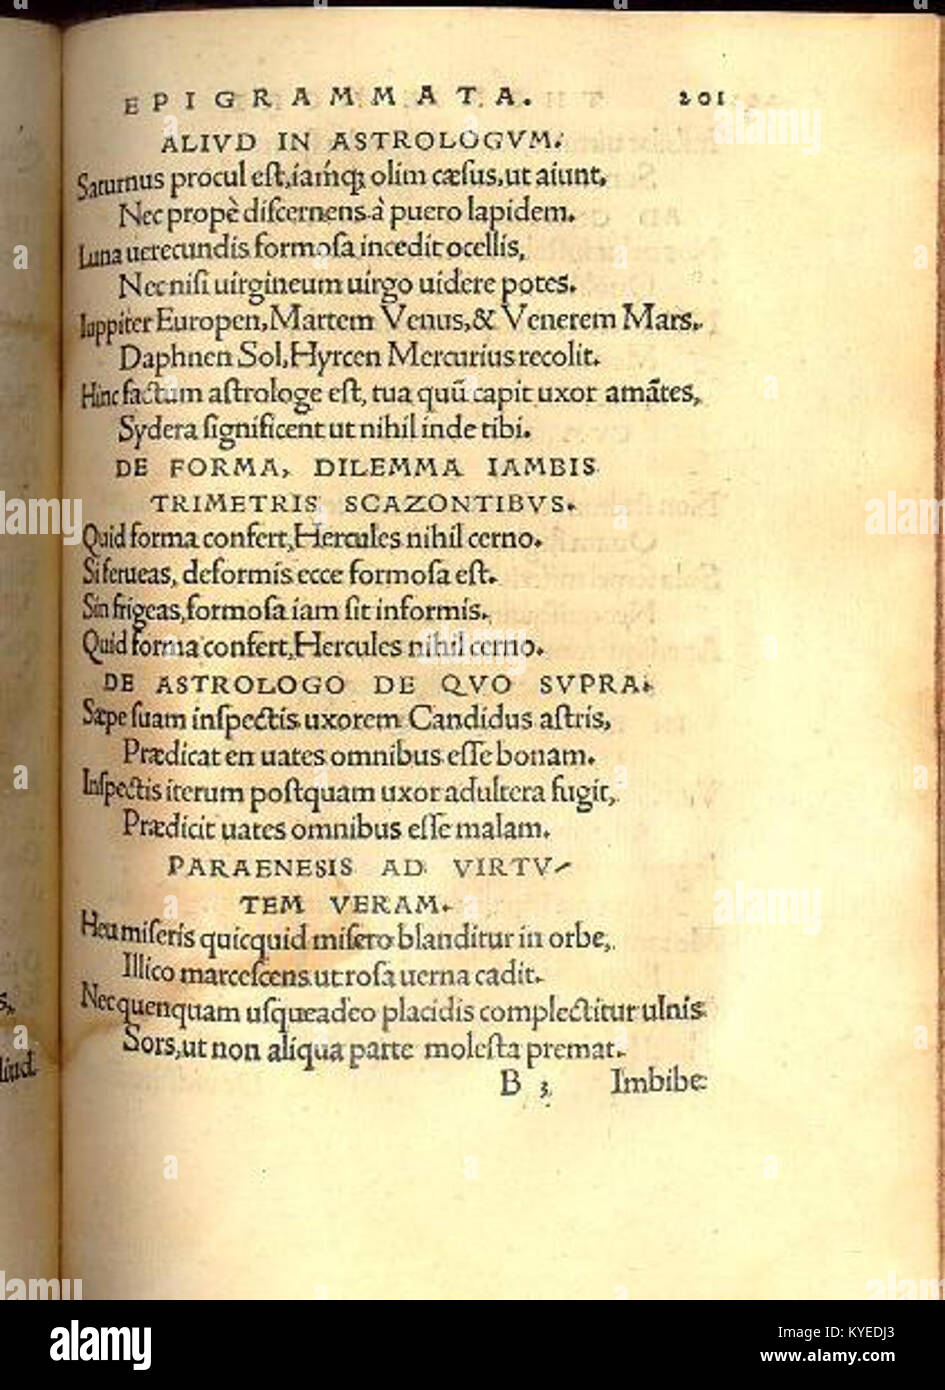 EPIGRAMMATA. 201
ALIVD IN ASTROLOGVM.
Saturnus procul est, iamq̃ olim cæsus, ut aiunt,
Nec propè discernens à puero lapidem.
Luna uerecundis formosa incedit ocellis,
Nec nisi uirgineum uirgo uidere potes.
Iuppiter Europen, Martem Venus, & Venerem Mars,
Daphnen Sol, Hyrcen Mercurius recolit.
Hinc factum astrologe est, tua quũ capit uxor amãtes,
Sydera significent ut nihil inde tibi.
DE FORMA, DILEMMA IAMBIS
TRIMETRIS SCAZONTIBVS.
Quid forma confert, Hercules nihil cerno.
Si ferueas, deformis ecce formosa est.
Sin frigeas, formosa iam sit informis.
Quid forma confert, Hercules nihil cerno.
DE ASTROLOGO DE QVO SVPRA.
Sæpe suam inspectis uxorem Candidus astris,
Prædicat en uates omnibus esse bonam.
Inspectis iterum postquam uxor adultera fugit,
Prædicit uates omnibus esse malam.
PARAENESIS AD VIRTV-
TEM VERAM.
Heu miseris quicquid misero blanditur in orbe,
Illico marcescens ut rosa uerna cadit.
Nec quenquam usqueadeo placidis complectitur ulnis
Sors, ut non aliqua parte molesta premat.
B 3 Imbibe
alamy
Image ID: KYEDJ3
www.alamy.com